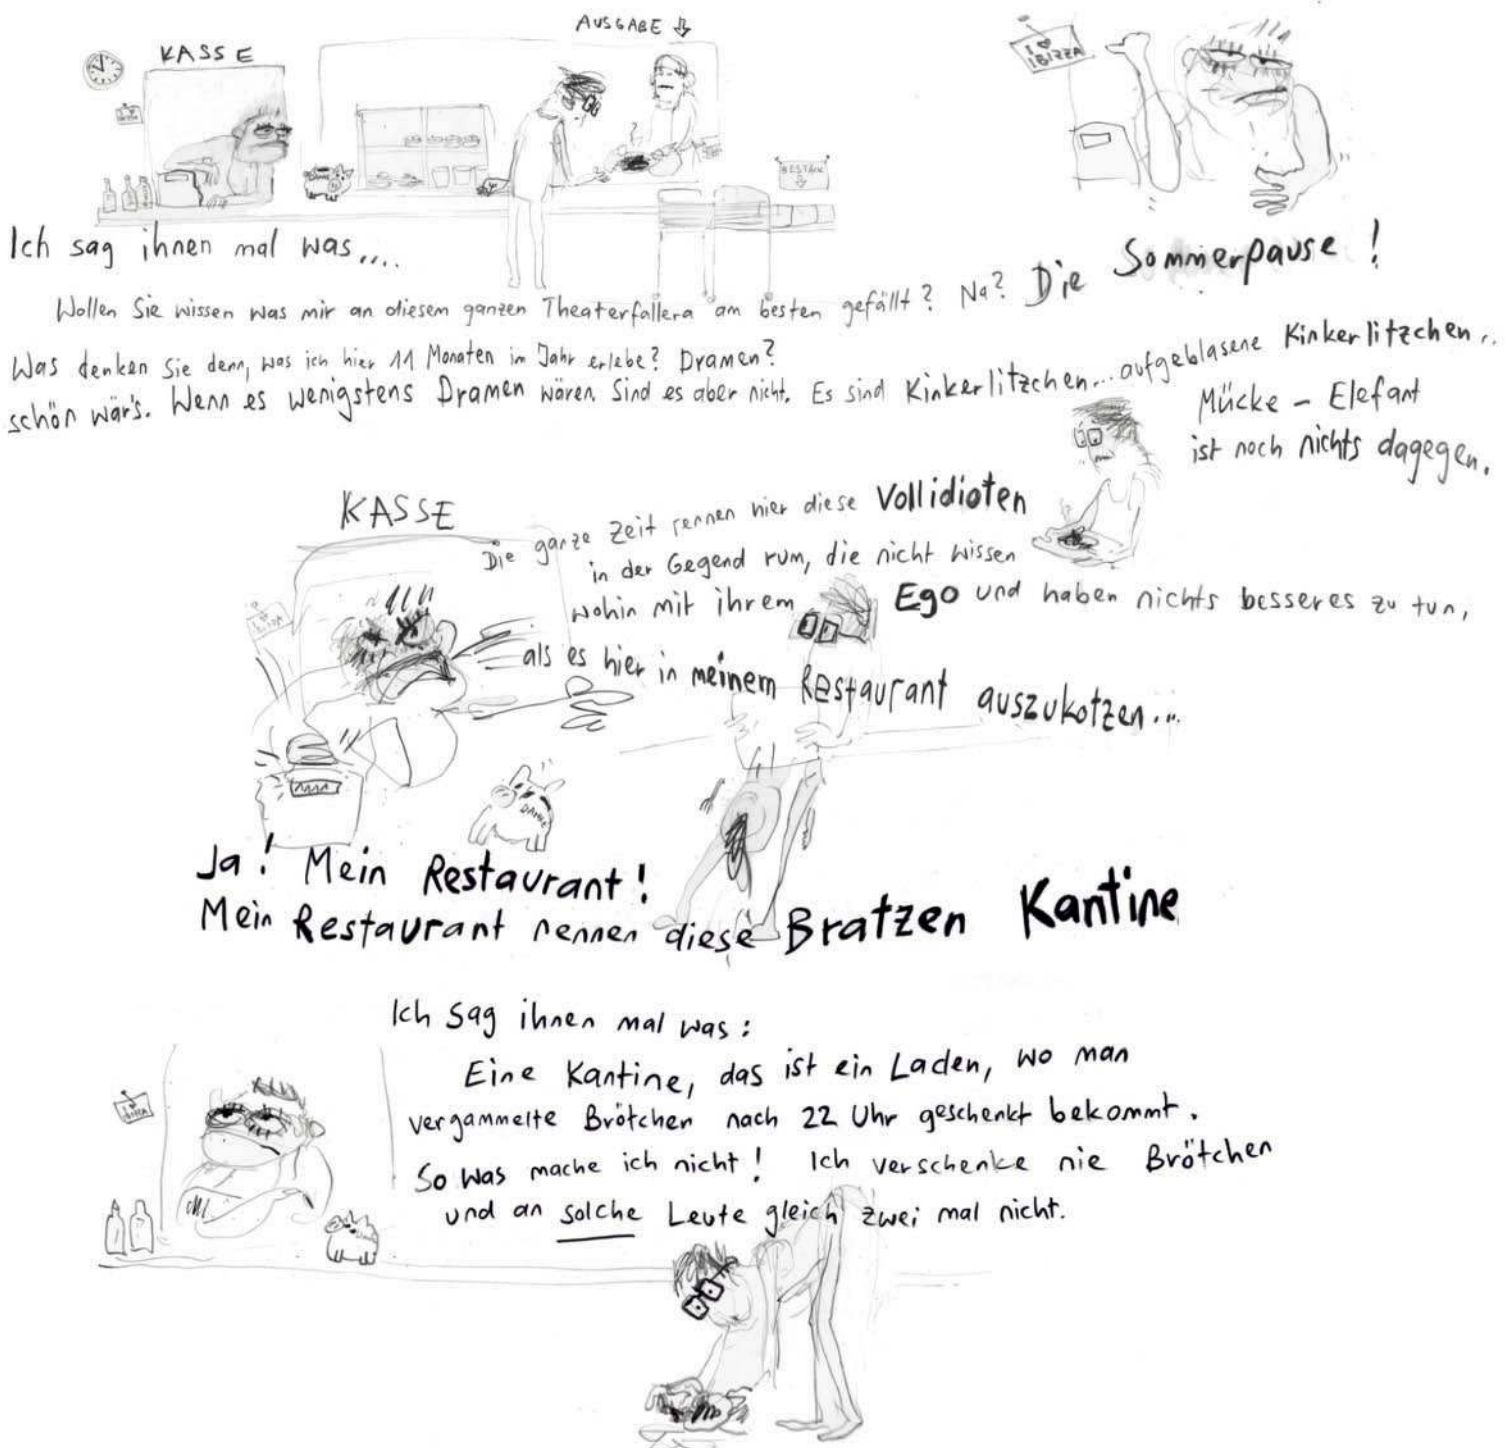 AUSGABE
KASSE
I ♥
IBIZZA
BESTECK
DANKE
Ich sag ihnen mal was....
Wollen Sie wissen was mir an diesem ganzen Theaterfallera am besten gefällt? Na? Die Sommerpause!
Was denken Sie denn, was ich hier 11 Monaten im Jahr erlebe? Dramen?
schön wär's. Wenn es wenigstens Dramen wären. Sind es aber nicht. Es sind Kinkerlitzchen... aufgeblasene Kinkerlitzchen..
Mücke – Elefant
ist noch nichts dagegen.
KASSE
Die ganze Zeit rennen hier diese Vollidioten
in der Gegend rum, die nicht wissen
wohin mit ihrem Ego und haben nichts besseres zu tun,
als es hier in meinem Restaurant auszukotzen...
IBIZZA
DANKE
Ja! Mein Restaurant!
Mein Restaurant nennen diese Bratzen Kantine
Ich sag ihnen mal was:
Eine Kantine, das ist ein Laden, wo man
vergammelte Brötchen nach 22 Uhr geschenkt bekommt.
So was mache ich nicht! Ich verschenke nie Brötchen
und an solche Leute gleich zwei mal nicht.
I ♥
IBIZZA